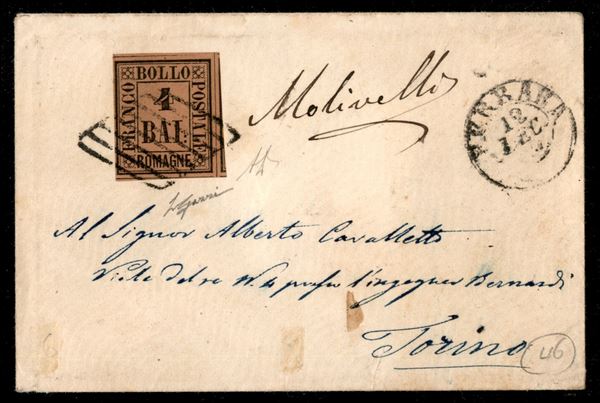 FRANCO BOLLO POSTALE
4
BAI.
ROMAGNE
Molivelli
FERRARA
12
DEC
Al Signor Alberto Cavalletto
Viale del re N. 4 presso l'ingegner Bernardi
Torino
46